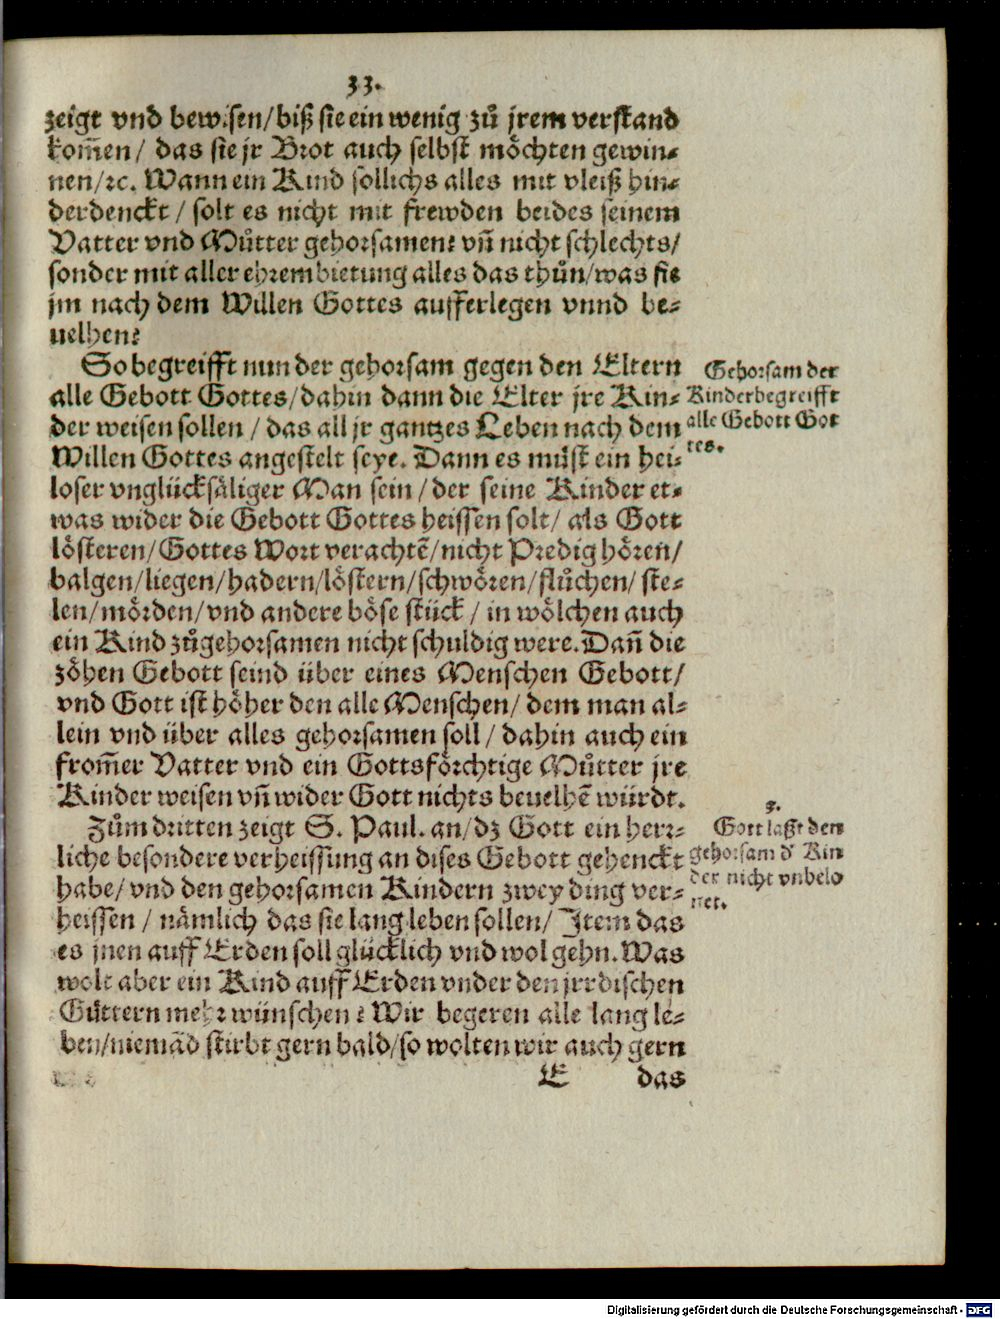 33.
zeigt vnd bewisen/biß sie ein wenig zů jrem verstand
kom̃en/ das sie jr Brot auch selbst möchten gewin-
nen/ꝛc. Wann ein Kind sollichs alles mit vleiß hin-
derdenckt / solt es nicht mit frewden beides seinem
Vatter vnd Můtter gehorsamen? vñ nicht schlechts/
sonder mit aller ehrembietung alles das thůn/was sie
jm nach dem Willen Gottes aufferlegen vnnd be-
uelhen?
So begreifft nun der gehorsam gegen den Eltern
alle Gebott Gottes/dahin dann die Elter jre Kin-
der weisen sollen / das all jr gantzes Leben nach dem
Willen Gottes angestelt seye. Dann es můst ein hei-
loser vnglücksäliger Man sein / der seine Kinder et-
was wider die Gebott Gottes heissen solt/ als Gott
lösteren/Gottes Wort verachtẽ/nicht Predig hören/
balgen/liegen/hadern/löstern/schwören/flůchen/ ste-
len/mörden/vnd andere böse stück / in wölchen auch
ein Kind zůgehorsamen nicht schuldig were. Dañ die
zöhen Gebott seind über eines Menschen Gebott/
vnd Gott ist höher den alle Menschen/ dem man al-
lein vnd über alles gehorsamen soll / dahin auch ein
from̃er Vatter vnd ein Gottsförchtige Můtter jre
Kinder weisen vñ wider Gott nichts beuelhẽ würdt.
Zům dritten zeigt S. Paul. an/dz Gott ein herr-
liche besondere verheissung an dises Gebott gehenckt
habe/ vnd den gehorsamen Kindern zwey ding ver-
heissen / nämlich das sie lang leben sollen/ Item das
es jnen auff Erden soll glücklich vnd wol gehn. Was
wolt aber ein Kind auff Erden vnder den jrrdischen
Güttern mehr wünschen? Wir begeren alle lang le-
ben/niemãd stirbt gern bald/so wolten wir auch gern
E das
Gehorsam der
Kinder begreifft
alle Gebott Got
tes.
3.
Gott laßt den
gehorsam d' Kin
der nicht vnbelo
net.
Digitalisierung gefördert durch die Deutsche Forschungsgemeinschaft - DFG